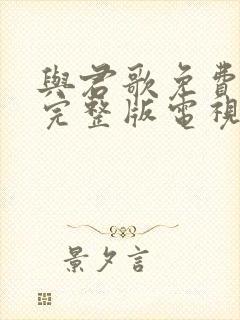 與君歌免費
完整版電視
景夕言